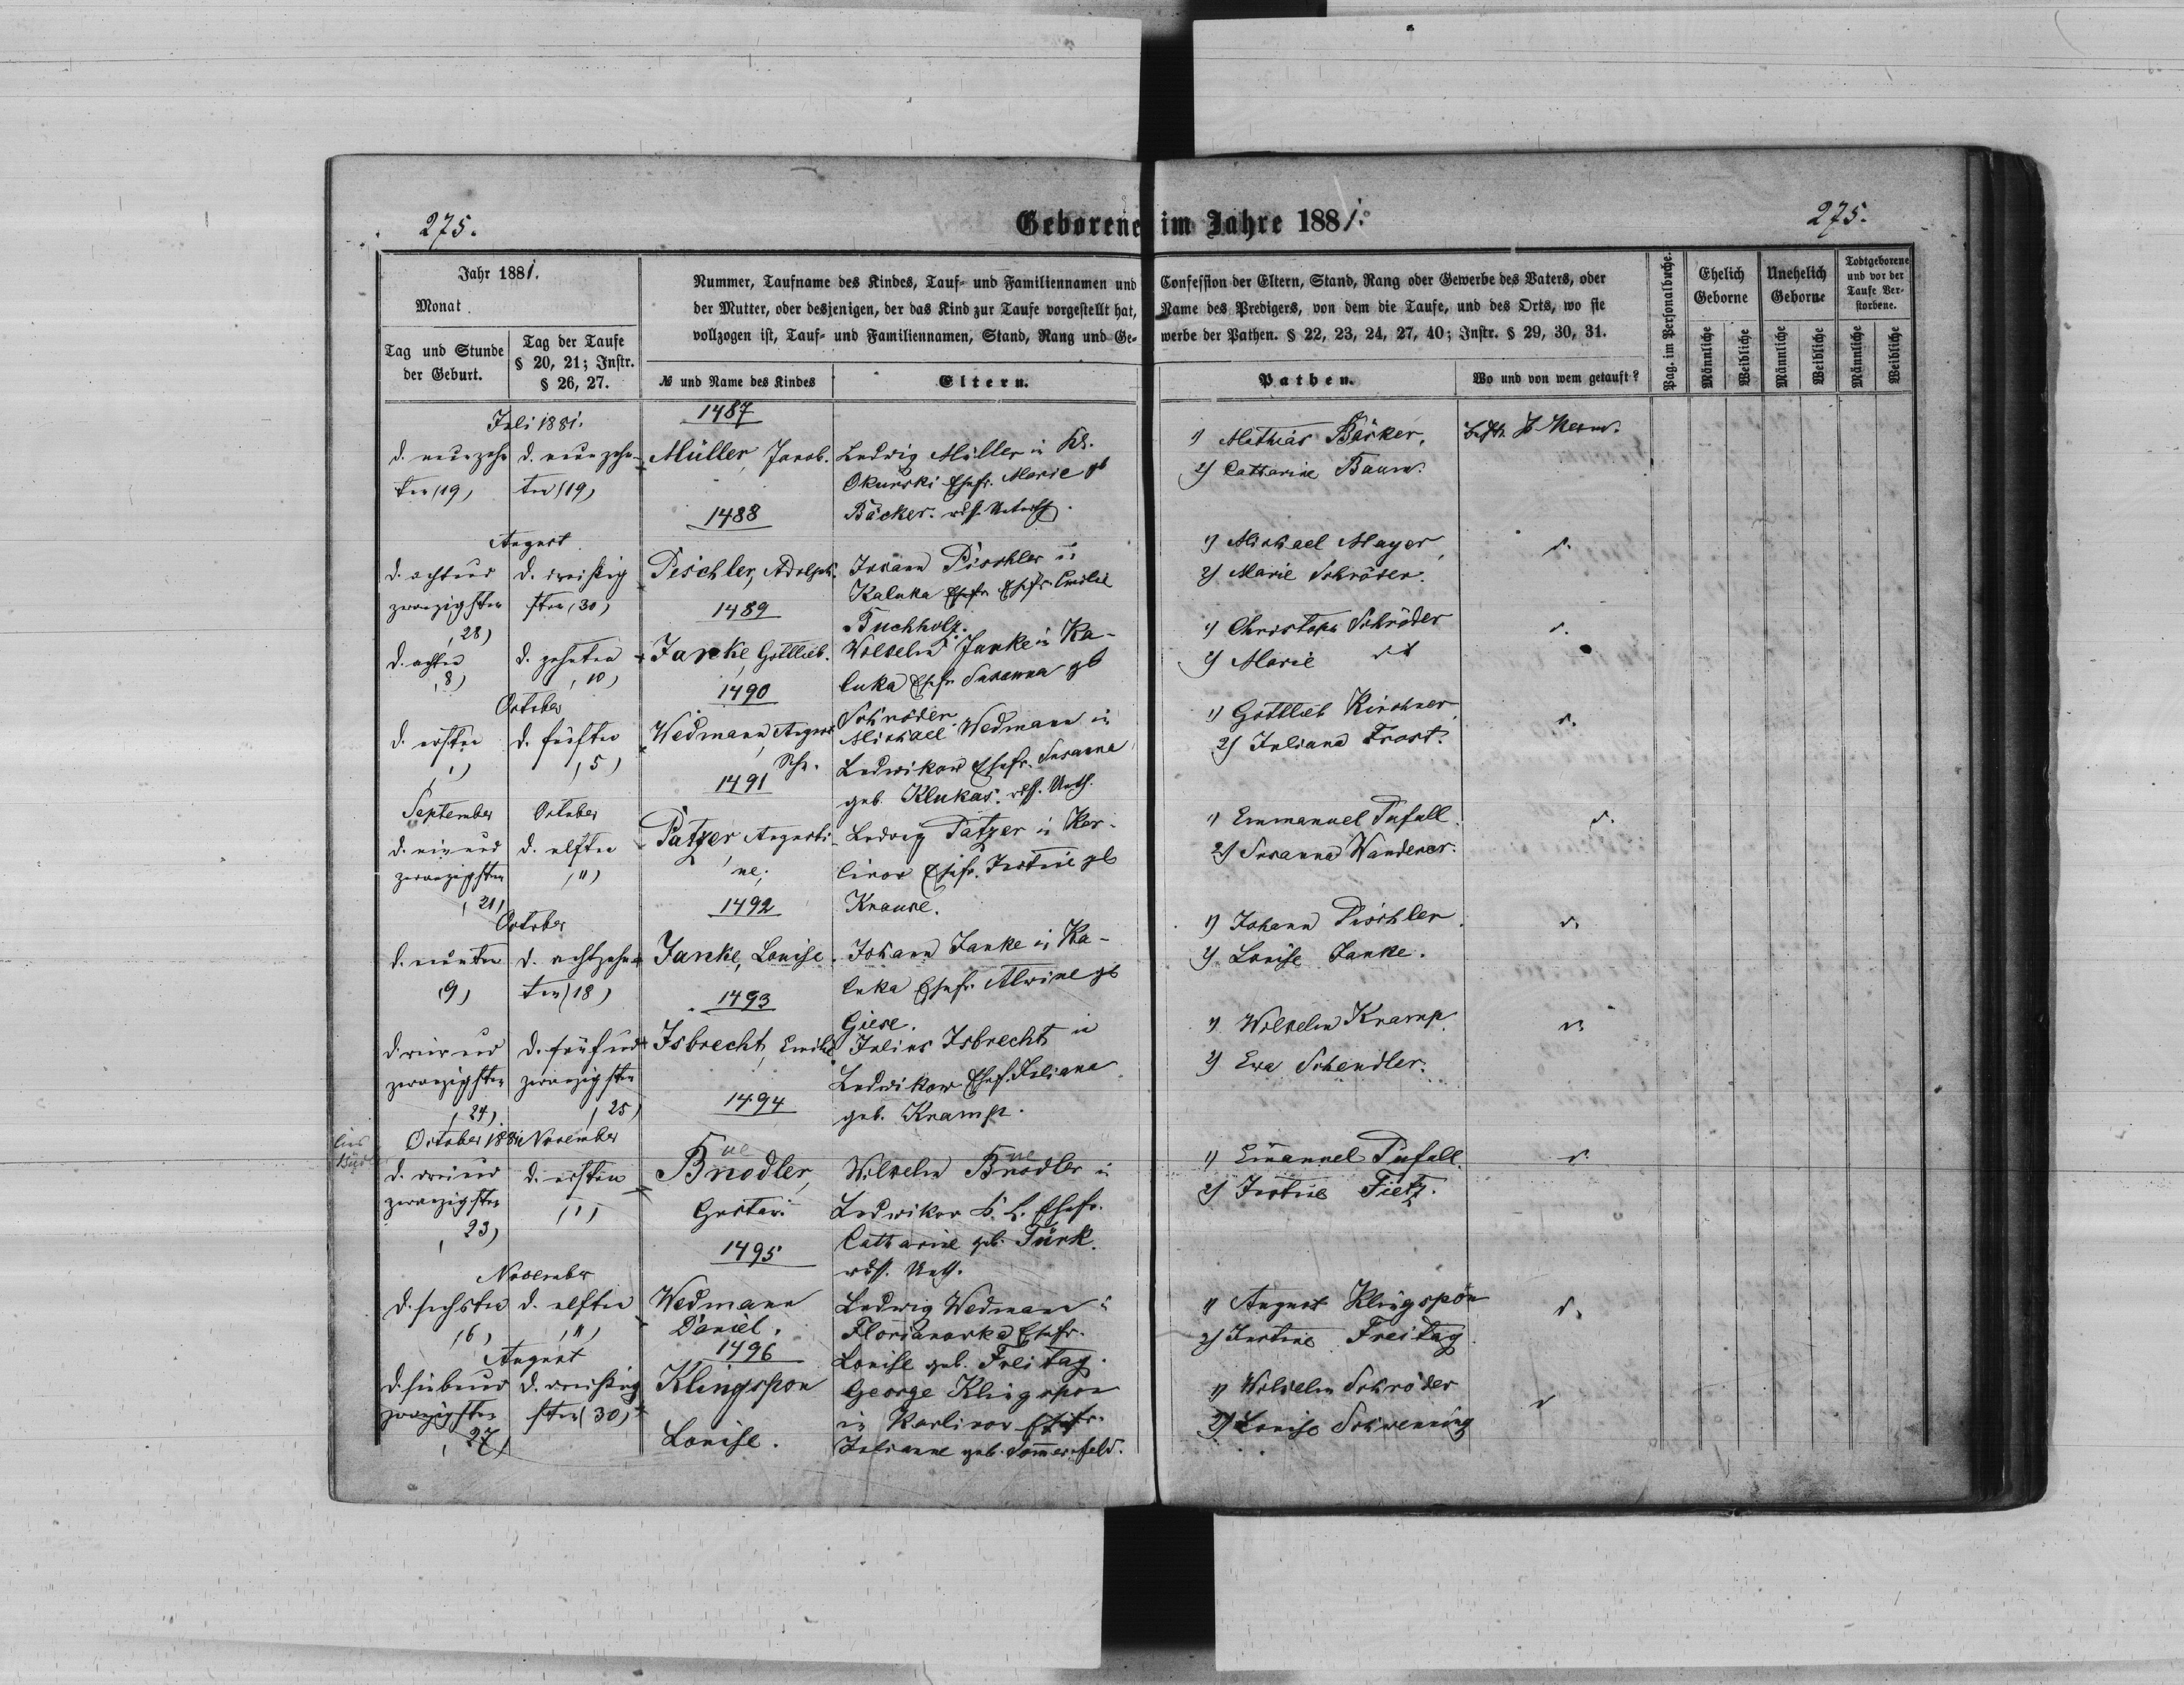 275.
Geborene im Jahre 1881.
275.
Jahr 1881.
Monat.
Tag und Stunde
der Geburt.
Tag der Taufe
§ 20, 21; Instr.
§ 26, 27.
Nummer, Taufname des Kindes, Tauf- und Familiennamen und
der Mutter, oder desjenigen, der das Kind zur Taufe vorgestellt hat,
vollzogen ist, Tauf- und Familiennamen, Stand, Rang und Ge-
№ und Name des Kindes
Eltern.
Confession der Eltern, Stand, Rang oder Gewerbe des Vaters, oder
Name des Predigers, von dem die Taufe, und des Orts, wo sie
werbe der Pathen. § 22, 23, 24, 27, 40; Instr. § 29, 30, 31.
Pathen.
Wo und von wem getauft?
Pag. im Personalbuche.
Ehelich
Geborne
Unehelich
Geborne
Todtgeborene
und vor der
Taufe Ver-
storbene.
Männliche
Weibliche
Männliche
Weibliche
Männliche
Weibliche
Juli 1881.
d. neunzehn
ten (19)
d. neunzehn-
ten (19)
1487
Müller, Jacob.
Ludwig Müller in Kl.
Okunski Ehefr. Marie gb
Bäcker.
1) Mathias Bäcker.
2) Catharine Baum.
August
d. achtund
zwanzigsten
(28)
d. dreißig
sten (30)
1488
Peschler, Adolph.
Johann Pischler in
Kaluka Ehefr. Emilie
Buchholz.
1) Michael Mayer
2) Marie Schröder.
d.
d. achten
(8)
d. zehnten
(10)
1489
Janke, Gottlieb.
Wilhelm Janke in Ka-
luka Ehefr. Susanna gb
Schröder.
1) Christoph Schröder
2) Marie dt
d.
October
d. ersten
(1)
d. fünften
(5)
1490
Wedmann, August
Michael Wedmann in
Ludwikow Ehefr. Susanna
geb. Klukas.
1) Gottlieb Kirchner
2) Juliana Frost.
d.
September
d. einund
zwanzigsten
(21)
October
d. elften
(11)
1491
Patzer, Augusti-
ne;
Ludwig Patzer in Kar-
linow Ehefr. Justine gb
Krause.
1) Emmanuel Pufall.
2) Susanna Wanderer.
d.
October
d. neunten
(9)
d. achtzehn-
ten (18)
1492
Janke, Louise.
Johann Janke in Ka-
luka Ehefr. Alwine gb
Giese.
1) Johann Pischler.
2) Louise Janke.
d.
d. vierund
zwanzigsten
(24)
d. fünfund
zwanzigsten
(25)
1493
Isbrecht, Emilie
Julius Isbrecht in
Ludwikow Ehefr. Juliana
geb. Kramp.
1) Wilhelm Kramp.
2) Ewa Schendler.
d.
October 1881
d. dreiund
zwanzigsten
(23)
November
d. ersten
(1)
1494
Bnodler,
Gustav.
Wilhelm Bnodler in
Ludwikow Ehefr.
Catharine geb. Türk.
1) Emanuel Pufall.
2) Justine Fietz.
d.
November
d. sechsten
(6)
d. elften
(11)
1495
Wedmann
Daniel.
Ludwig Wedmann in
Florianowka Ehefr.
Louise geb. Freitag.
1) August Klingspon
2) Justine Freitag.
d.
August
d. siebenund
zwanzigsten
(27)
d. dreißig
sten (30)
1496
Klingspon
Louise.
George Klingspon
in Karlinow Ehefr.
Julianne geb. Sommerfeld.
1) Wilhelm Schröder
2) Louise Schwenning
d